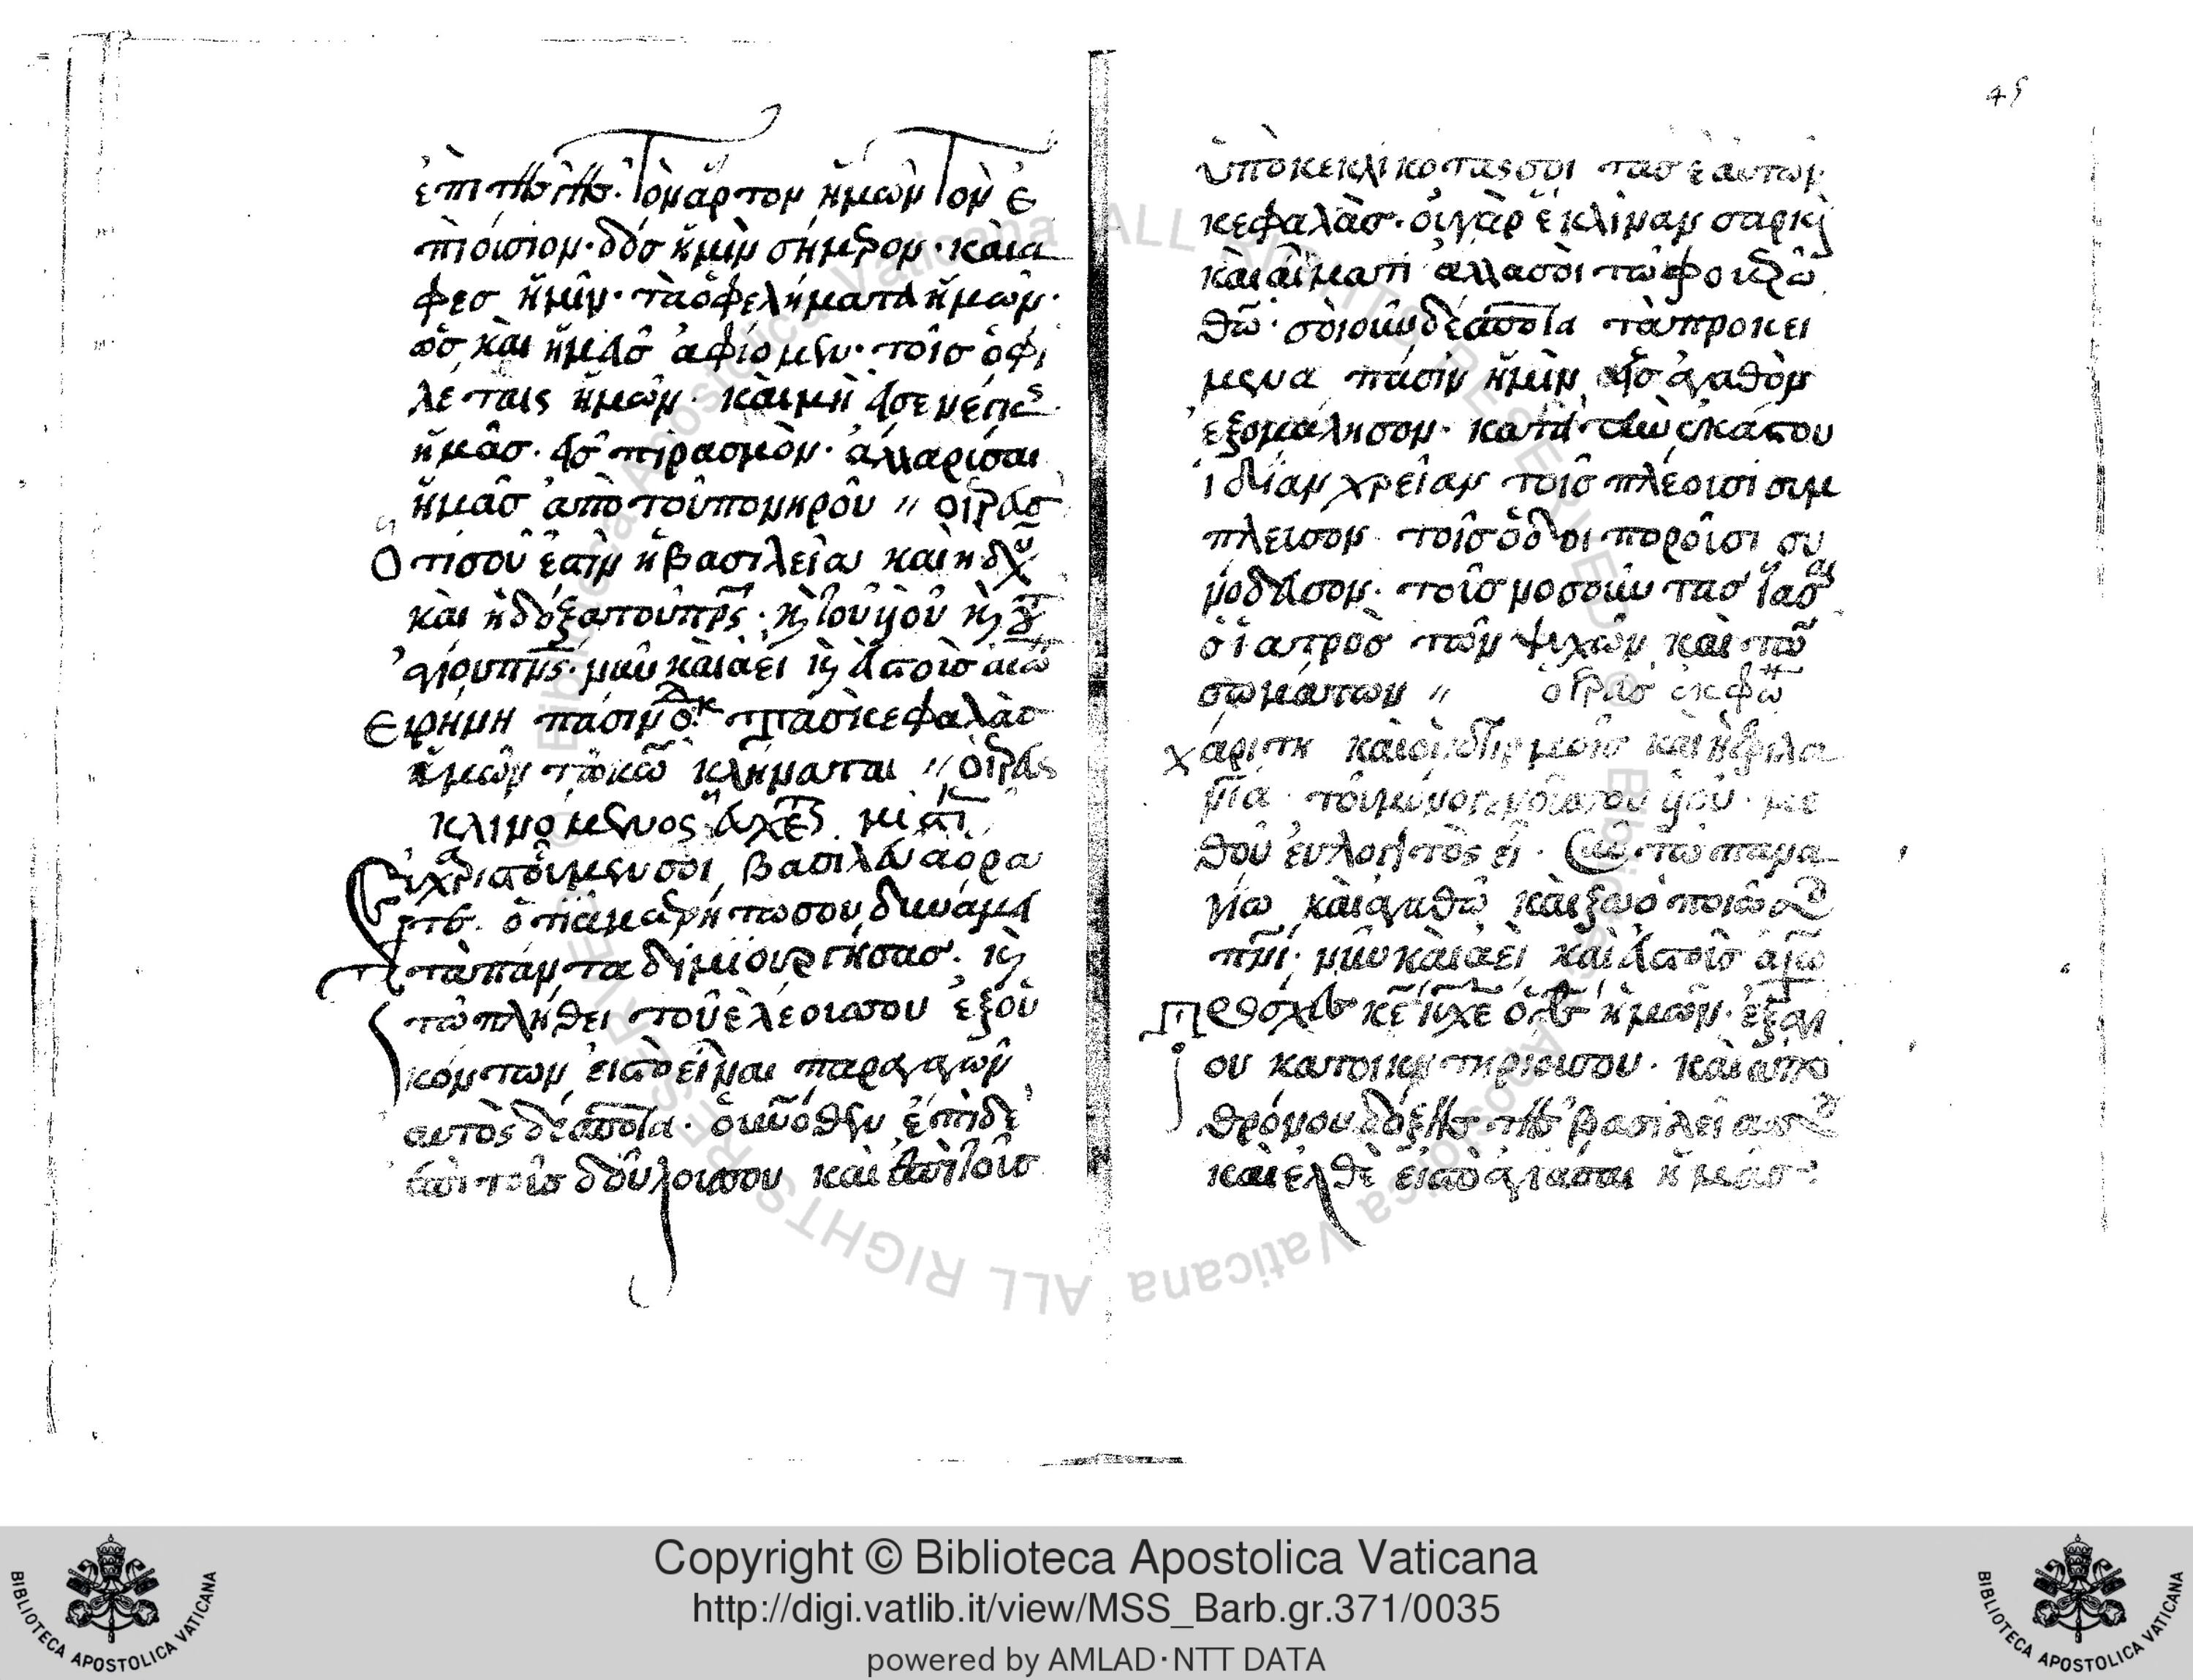 ἐπὶ τῆς γῆς. Τὸν ἄρτον ἡμῶν Τὸν ἐ
πιούσιον. δὸς ἡμῖν σήμερον. καὶ ἄ
φες ἡμῖν. τὰ ὀφελήματα ἡμῶν.
ὡς καὶ ἡμᾶς ἀφίομεν. τοῖς ὀφι
λέταις ἡμῶν. καὶ μὴ εἰσενέγκῃς
ἡμᾶς. εἰς πιρασμὸν. ἀλλὰ ρίσαι
ἡμᾶς ἀπὸ τοῦ πονηροῦ // ὁ ἱερεὺς
Ὅτι σοῦ ἐστὶν ἡ βασιλεία καὶ ἡ δύ
καὶ ἡ δόξα τοῦ πρς. κ τοῦ υἱοῦ κ τοῦ
ἁγίου πνς. νῦν καὶ ἀεὶ κ εἰς τοὺς αἰῶ
Εἰρήνη πάσιν ὁ δκ τὰς κεφαλὰς
ἡμῶν τῷ κω κλήναται // ὁ ἱερεὺς
κλινόμενος εὔχετ μυστ
Εὐχαριστοῦμεν σοι βασιλεῦ ἀόρα
τε. ὁ τῇ ἀμετρήτω σου δυνάμει
τὰ πάντα διμιουργήσας. κ
τῶ πλήθει τοῦ ἐλέους σου ἐξ οὐ
κόντων εἰς τὸ εἶναι παραγαγὼν
αὐτὸς δέσποτα. οὐνόθεν ἔπιδε
ἐπὶ τοῖς δούλοις σου καὶ ἐπὶ τοὺς
45
ὑποκεκλικότας σοι τὰς ἑαυτῶν
κεφαλὰς. οὐ γὰρ ἔκλιναν σαρκὶ
καὶ αἵματι ἀλλὰ σοὶ τῶ φοβερῶ
θῶ. σὺ οὖν δέσποτα τὰ προκεί
μενα πάσιν ἡμῖν εἰς ἀγαθὸν
ἐξομάλησον. κατὰ τὴν ἑκάστου
ἰδίαν χρείαν τοῖς πλέουσι συμ
πλευσον τοῖς ὁδοιποροῦσι συ
νόδευσον. τοὺς νοσοῦντας ἴασαι
ὁ ἰατρὸς τῶν ψυχῶν καὶ τῶν
σωμάτων // ὁ ἱερεὺς ἐκφω
χάριτη καὶ οἰκτιρμοῖς καὶ φιλα
νια τοῦ μονογενοῦς σου υἱοῦ. με
θοῦ εὐλογητὸς εἶ. σὺν τῶ πανα
γίω καὶ ἀγαθῶ καὶ ζωοποιῶ σου
πνι. νῦν καὶ ἀεὶ καὶ εἰς τοὺς αἰῶ
Πρόσχες κε ιυ χε ὁ θς ἡμῶν. ἐξ ἁγι
ου κατοικητηρίου σου. καὶ ἀπὸ
θρόνου δόξης τῆς βασιλείας σου
καὶ ἐλθὲ εἰς τὸ ἁγιάσαι ἡμᾶς.
Copyright © Biblioteca Apostolica Vaticana
http://digi.vatlib.it/view/MSS_Barb.gr.371/0035
powered by AMLAD·NTT DATA
BIBLIOTECA APOSTOLICA VATICANA
BIBLIOTECA APOSTOLICA VATICANA